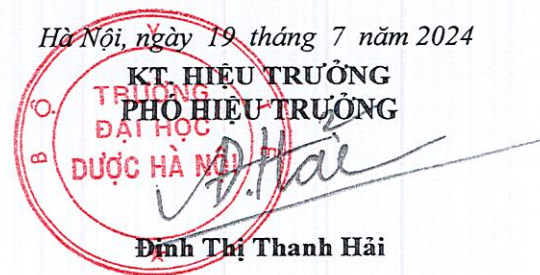 Hà Nội, ngày 19 tháng 7 năm 2024
KT. HIỆU TRƯỞNG
PHÓ HIỆU TRƯỞNG
BỘ Y
TRƯỜNG
ĐẠI HỌC
DƯỢC HÀ NỘI
Đ.Hải
Đinh Thị Thanh Hải